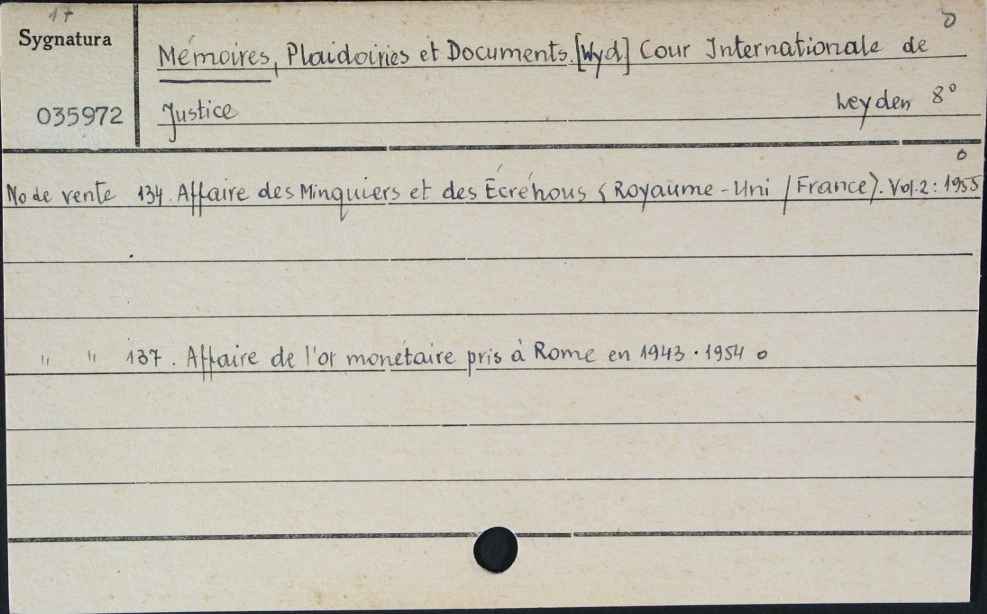 17
Sygnatura
035972
Mémoires, Plaidoiries et Documents. [Wyd] Cour Internationale de
Justice Leyden 8°
No de vente 134. Affaire des Minquiers et des Écréhous (Royaume-Uni / France). Vol. 2: 1955
" " 137. Affaire de l'or monétaire pris à Rome en 1943. 1954